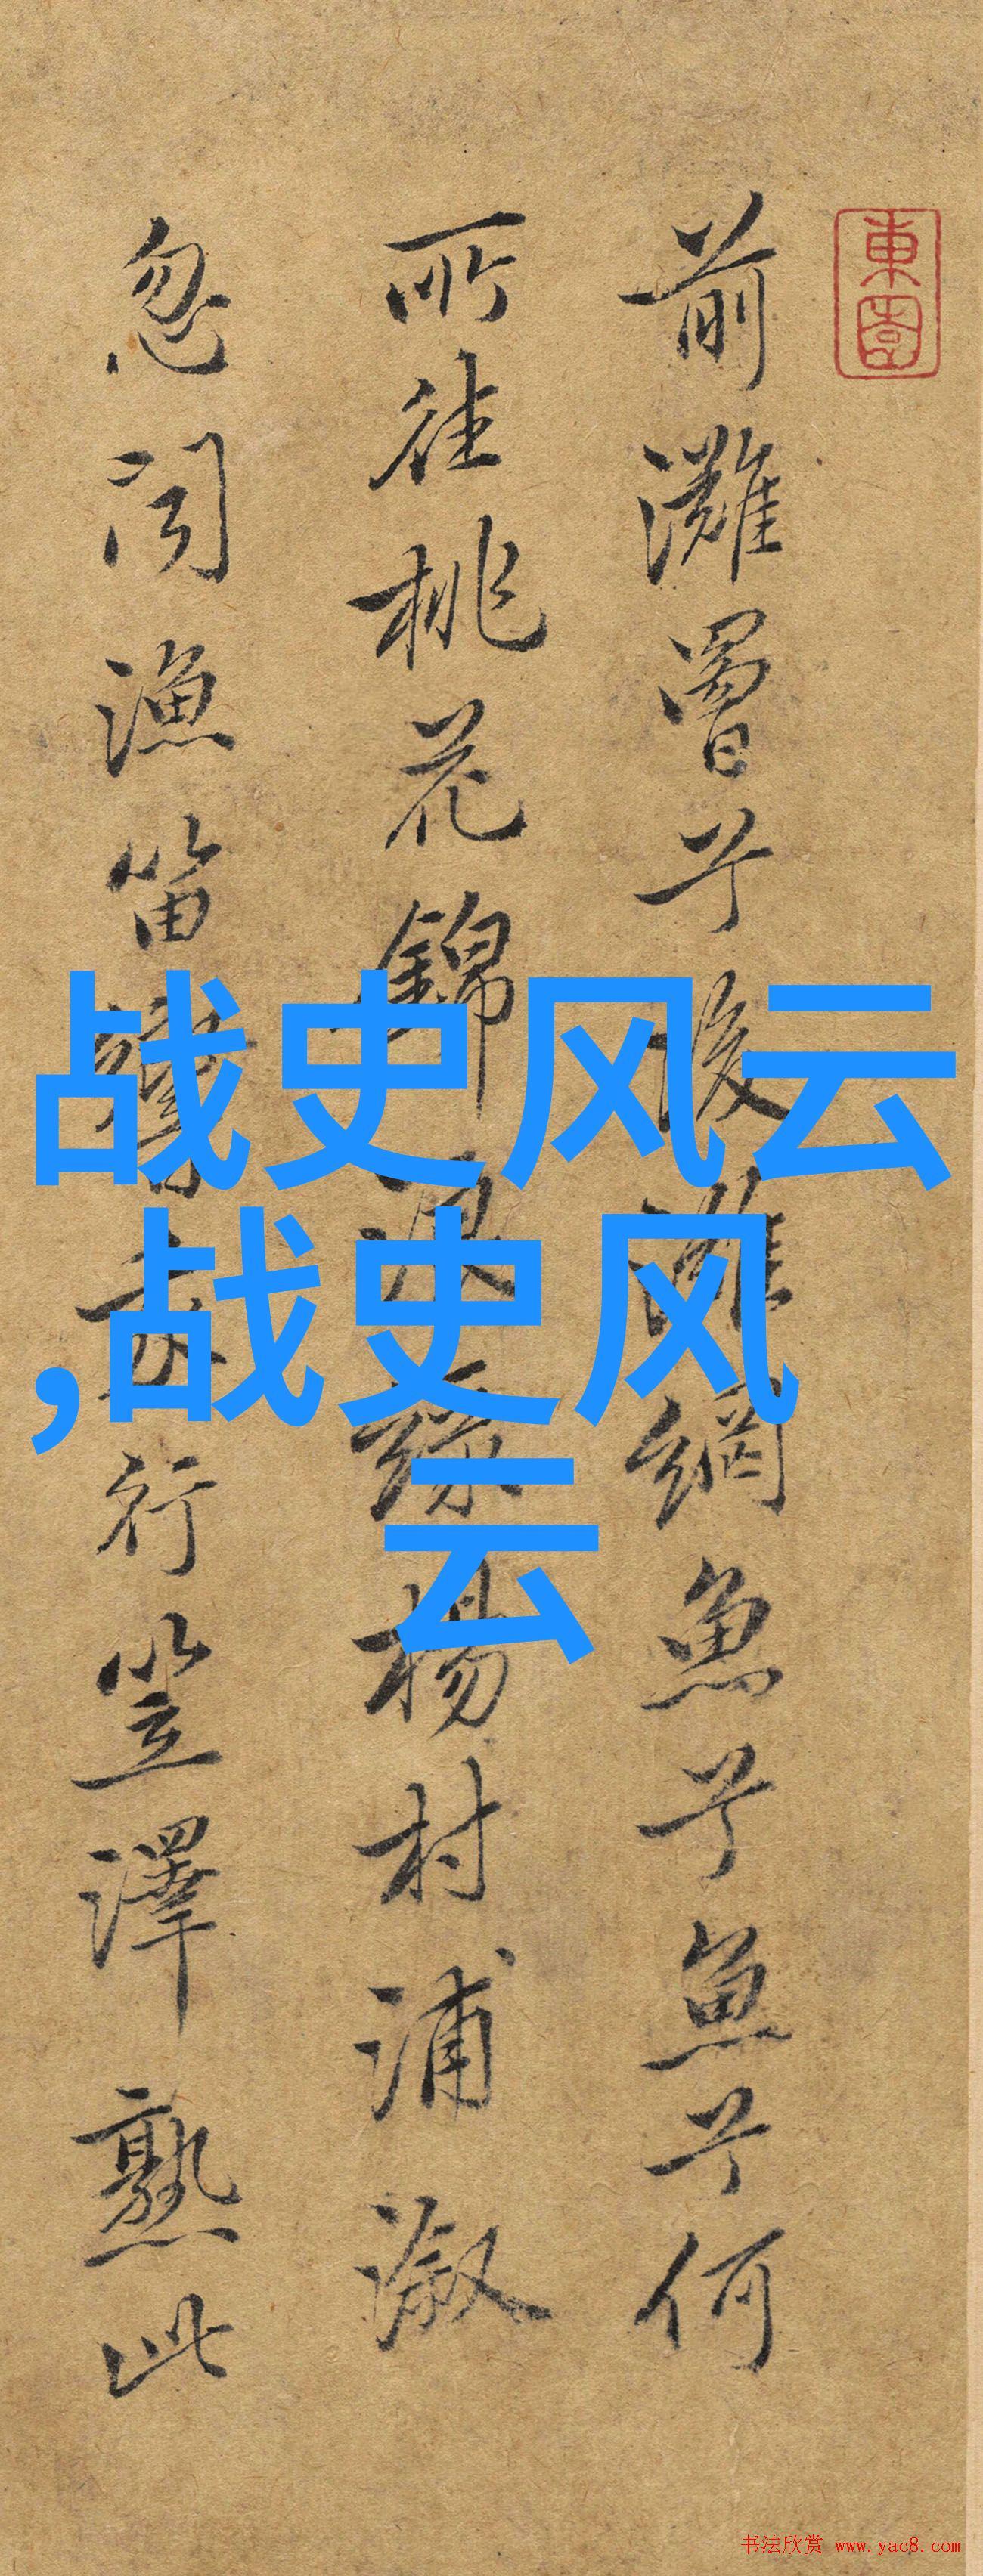 東園
前灘罾兮後灘網魚兮魚兮何
所往桃花錦浪綠楊村浦溆
忽聞漁笛響行笠澤熟此
战史风云
,战史风
云
书法欣赏 www.yac8.com